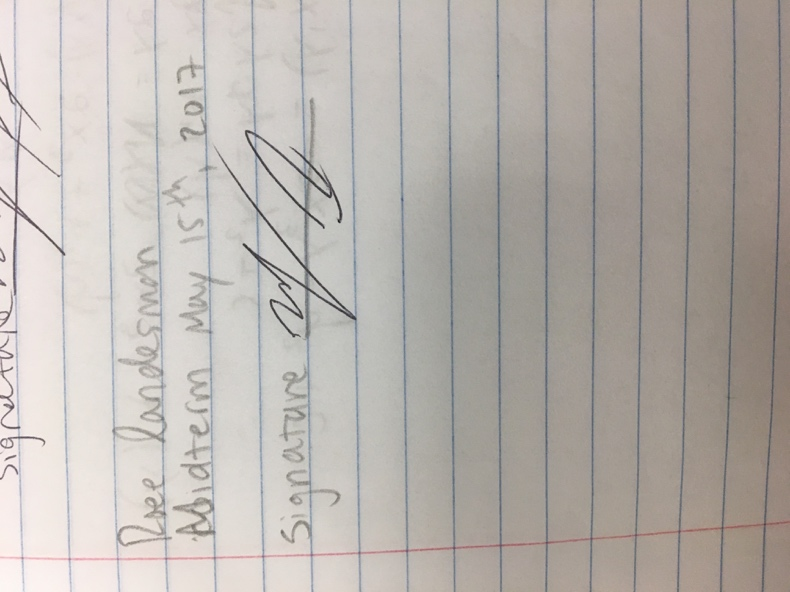 Signature
Ree Landesman
Midterm May 15th, 2017
Signature